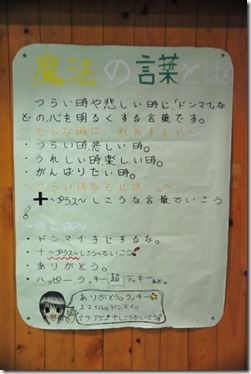 魔法の言葉とは
つらい時や悲しい時に「ドンマイ」な
どの、心を明るくする言葉です。
〜どんな時に、利用するか〜
・つらい時悲しい時。
・うれしい時楽しい時。
・がんばりたい時。
〜つらい時などには。〜
＋〜プラス〜しこうな言葉でいこう
・ドンマイ きにするな。
・＋〜プラス〜しこうでいこう
・ありがとう。
・ハッピー ラッキー
ありがとう。ラッキー
スマイル。ドンマイ。